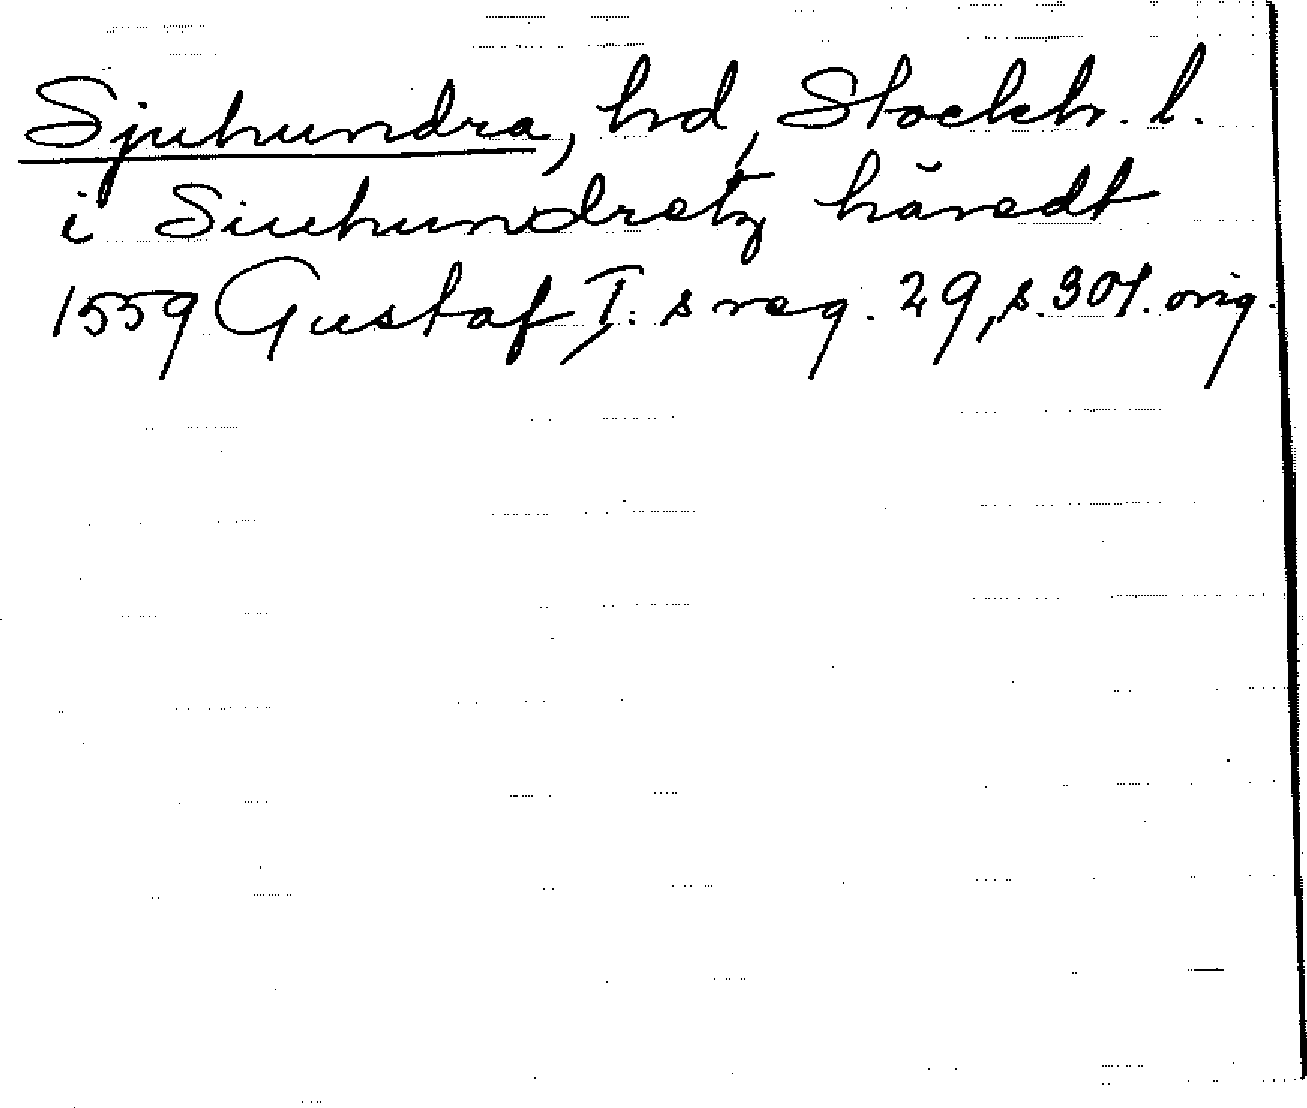 Sjuhundra, hd, Stockh. l.
i Siuhundretz häredt
1559 Gustaf I: s reg. 29, s. 307. orig.